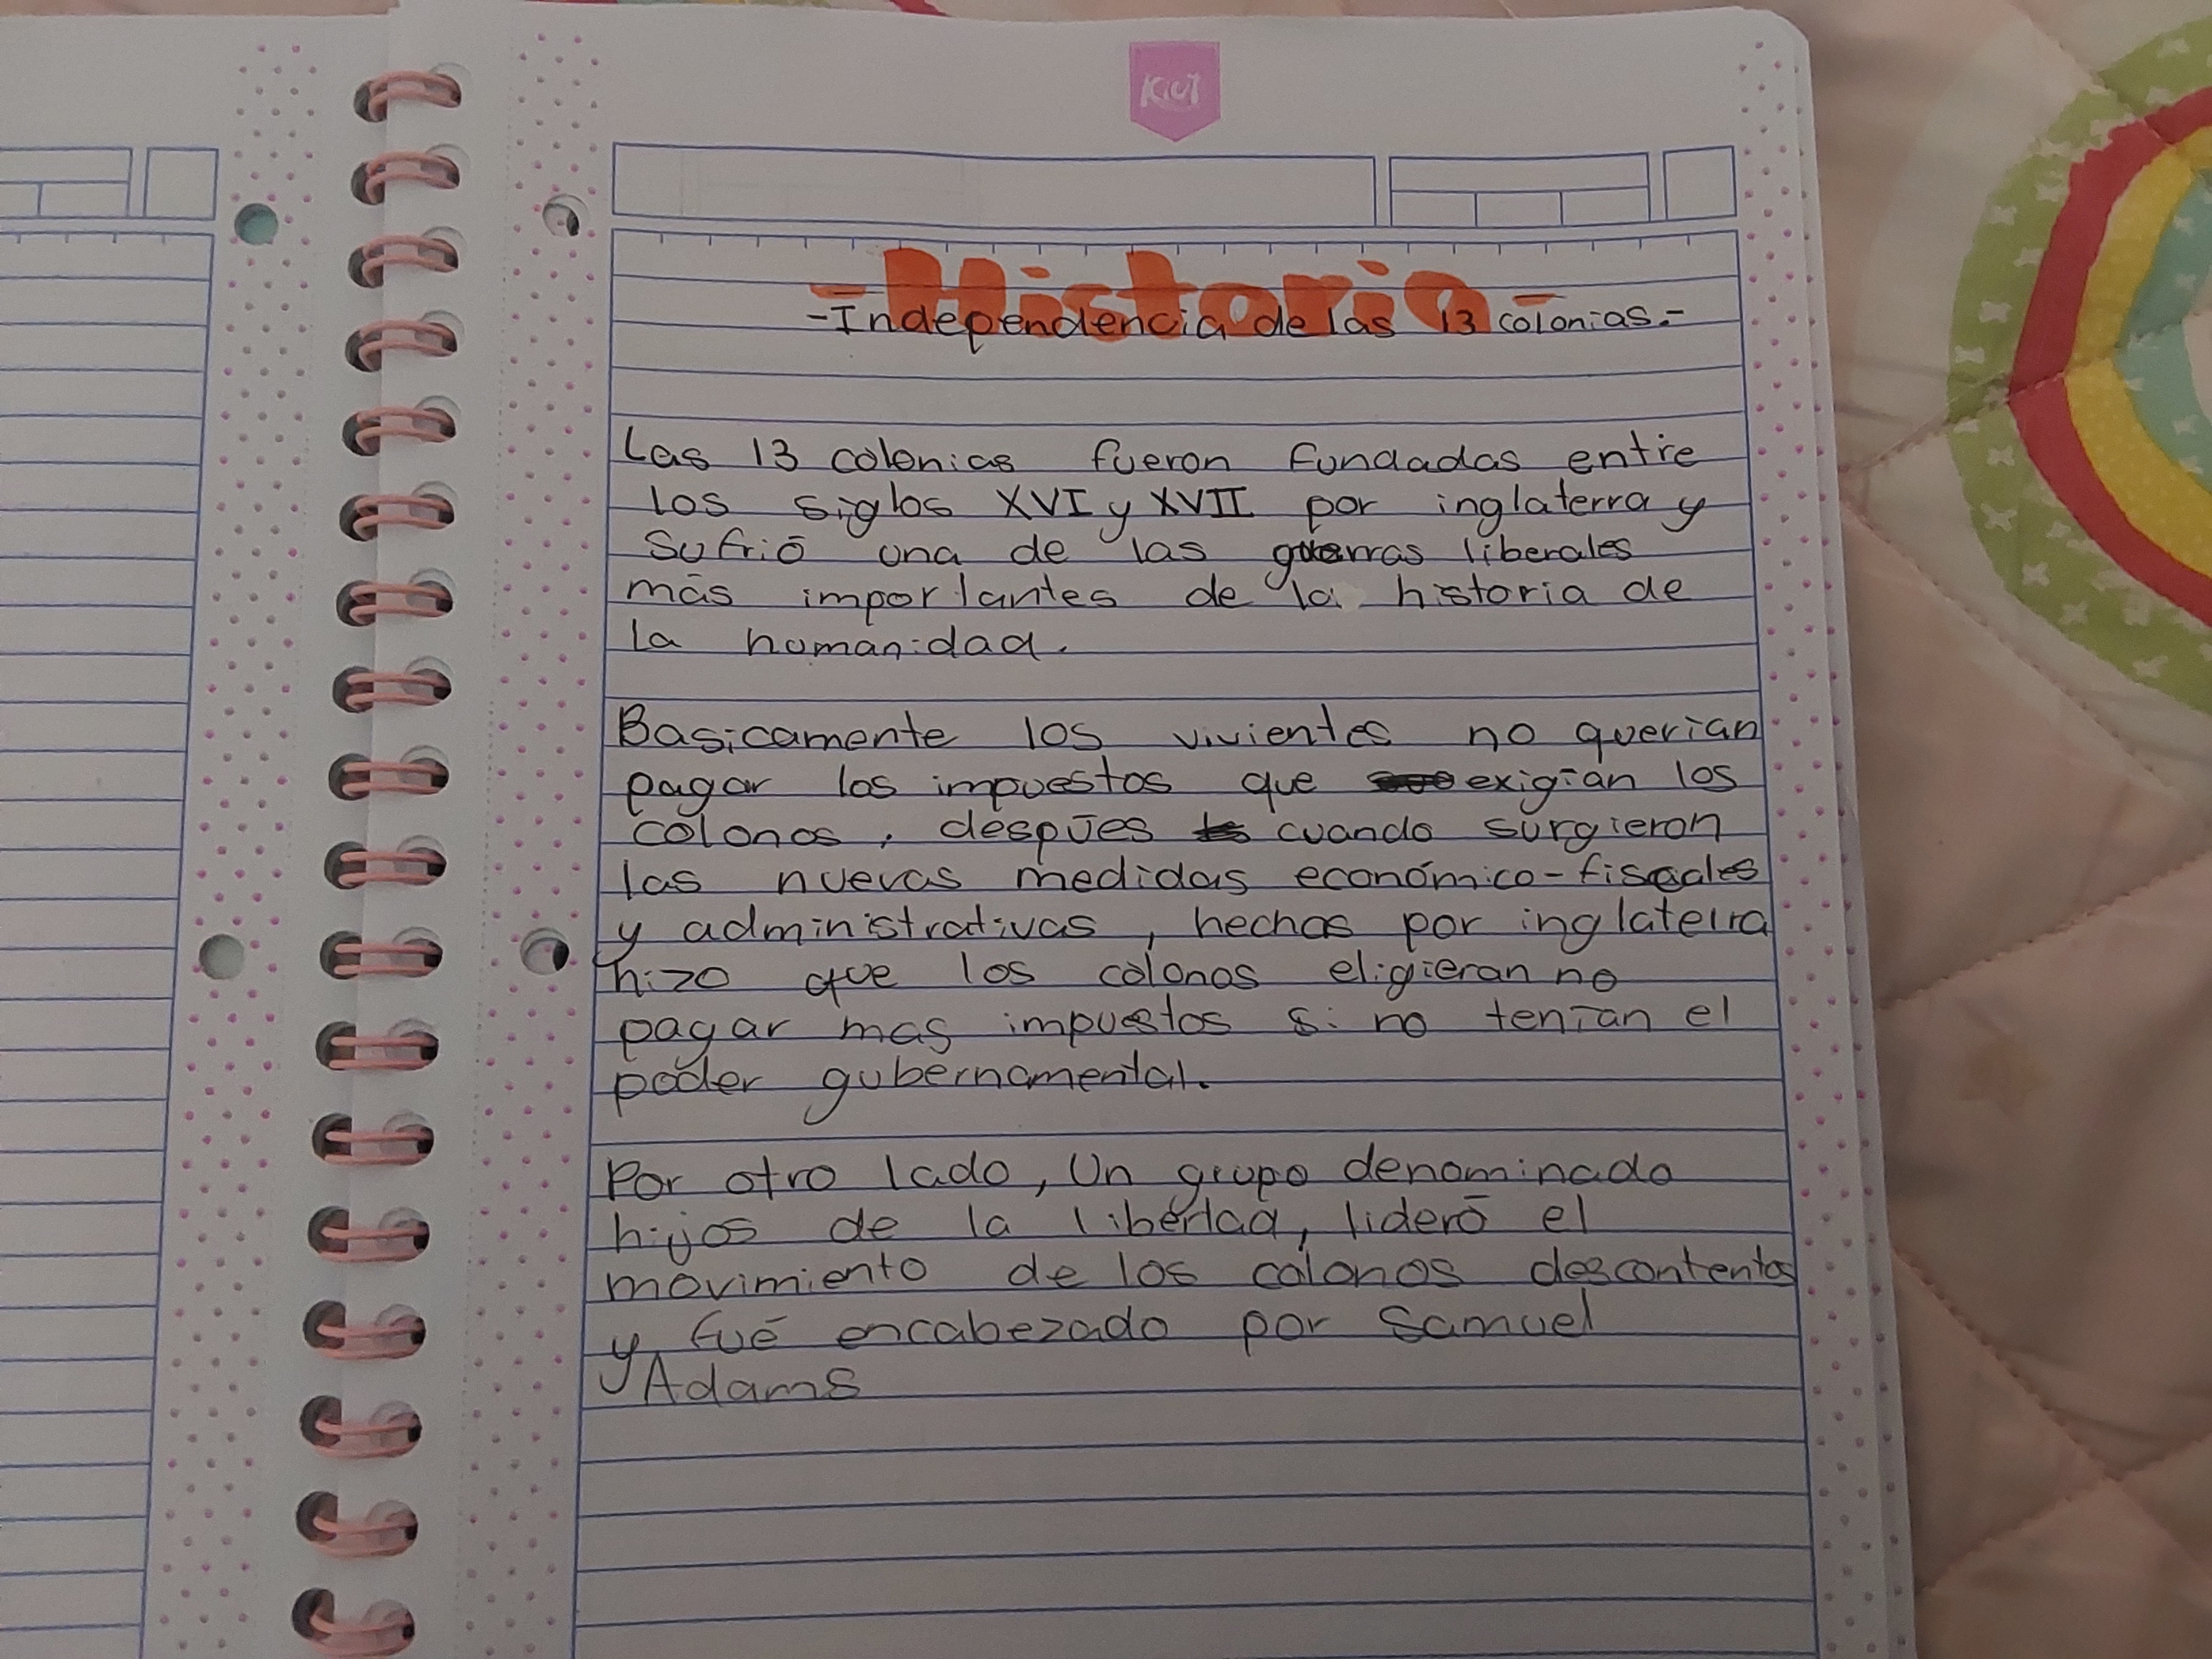 Kiut
-Historia-
-Independencia de las 13 colonias.-
Las 13 colonias fueron fundadas entre
los siglos XVI y XVII por inglaterra y
sufrió una de las guerras liberales
más importantes de la historia de
la humanidad.
Basicamente los vivientes no querían
pagar los impuestos que exigían los
colonos, despúes cuando surgieron
las nuevas medidas económico-fiscales
y administrativas, hechas por inglaterra
hizo que los colonos eligieran no
pagar mas impuestos si no tenían el
poder gubernamental.
Por otro lado, Un grupo denominado
hijos de la libertad, lideró el
movimiento de los colonos descontentos
y fué encabezado por Samuel
Adams